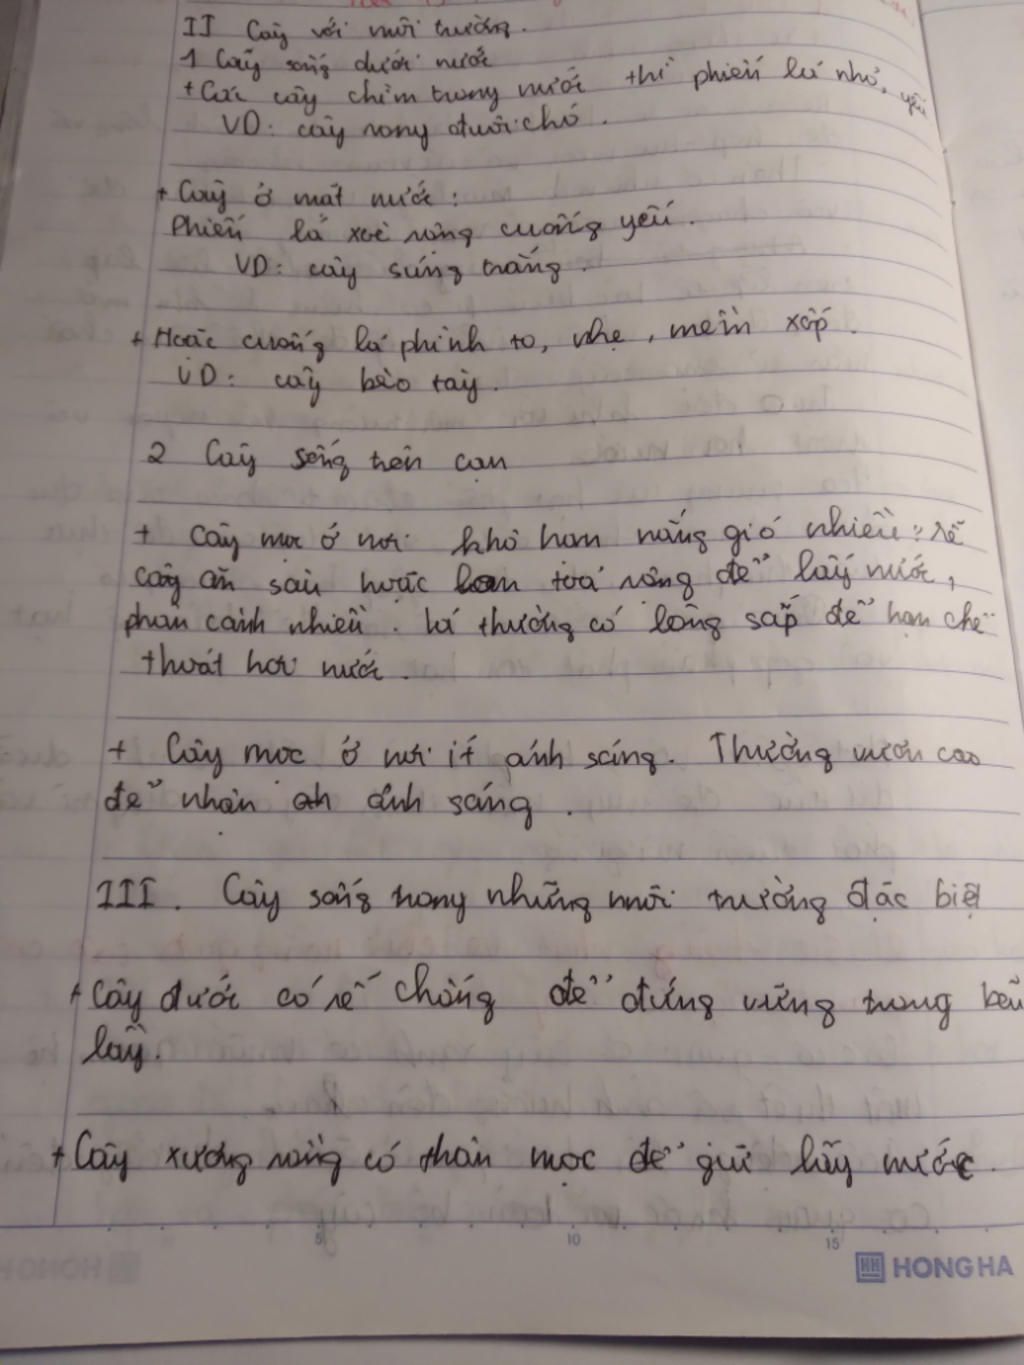 II Cây với môi trường.
1 Cây sống dưới nước
+ Các cây chìm trong nước thì phiến lá nhỏ, yếu
VD: cây rong đuôi chó.
+ Cây ở mặt nước:
Phiến lá xoè rộng cuống yếu.
VD: cây súng trắng.
+ Hoặc cuống lá phình to, nhẹ, mềm xốp.
VD: cây bèo tây.
2 Cây sống trên cạn
+ Cây mọc ở nơi khô hạn nắng gió nhiều: rễ
cây ăn sâu hoặc lan toả rộng để lấy nước,
phân cành nhiều. lá thường có lông sáp để hạn chế
thoát hơi nước.
+ Cây mọc ở nơi ít ánh sáng. Thường vươn cao
để nhận ánh sáng.
III. Cây sống trong những môi trường đặc biệt
+ Cây đước có rễ chống để đứng vững trong bểu
lầy.
+ Cây xương rồng có thân mọc để giữ lấy nước.
5 10 15
HONG HA